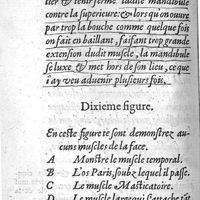 tier & tenir ferme ladite mandibule
contre la superieure: & lors qu'on ouure
par trop la bouche comme quelque fois
on fait en baillant, faisant trop grande
extension dudit muscle, la mandibule
se luxe & met hors de son lieu, ce que
i'ay veu aduenir plusieurs fois.
Dixieme figure.
En ceste figure te sont demonstrez au-
cuns muscles de la face.
A Monstre le muscle temporal.
B L'os Paris, soubz lequel il passe.
C Le muscle Masticatoire.
D Le muscle large qui s'attache